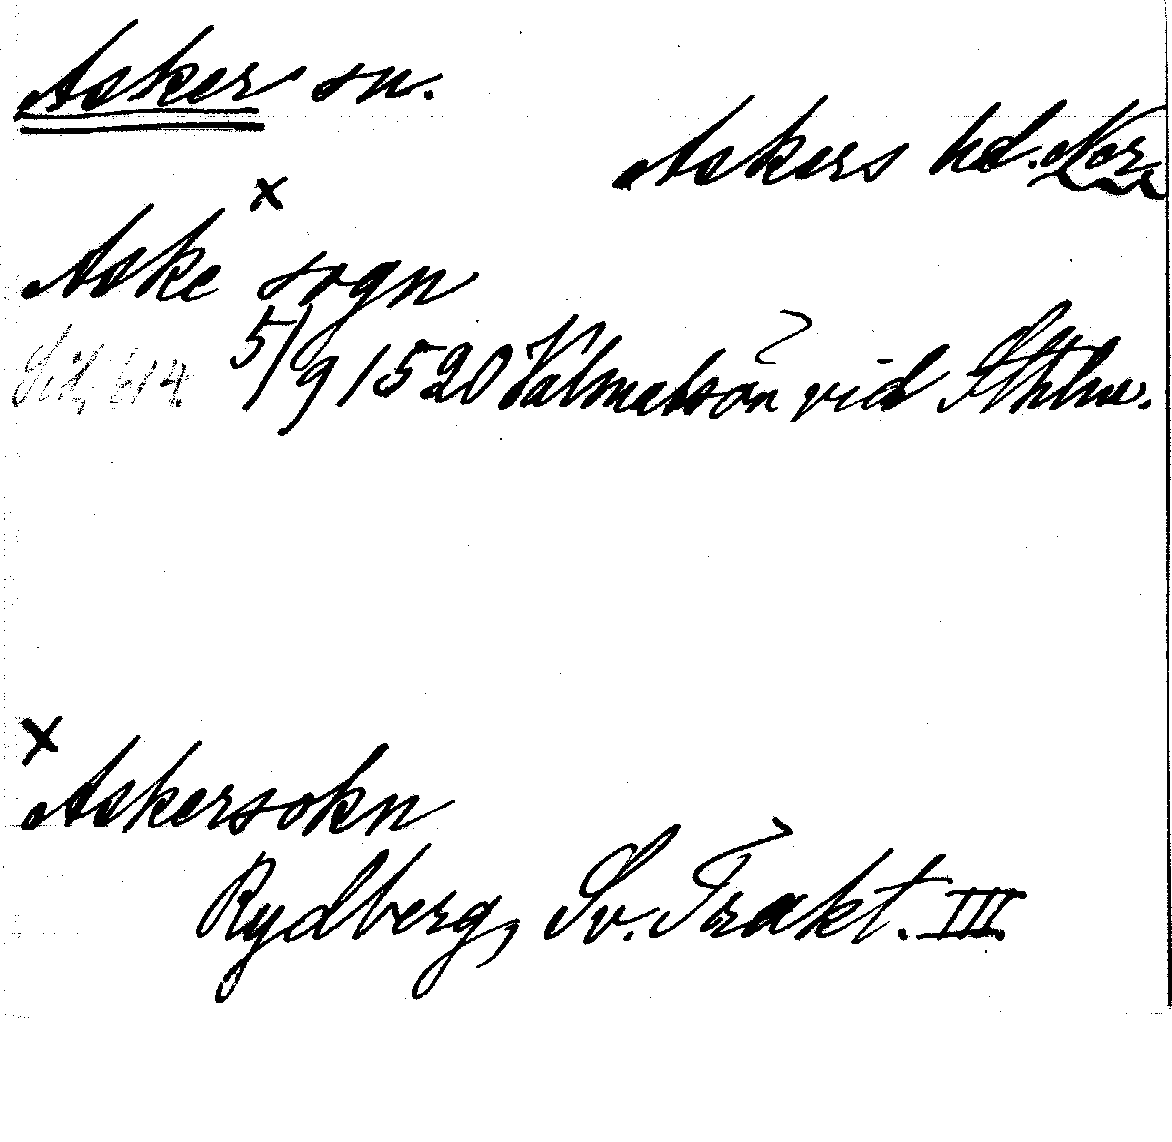 Asker sn.
Askers hd. Ner.
x
Aske sogn
5/9 1520 Valmalsön vid Sthlm.
x
Askersokn
Rydberg, Sv. Trakt. III.